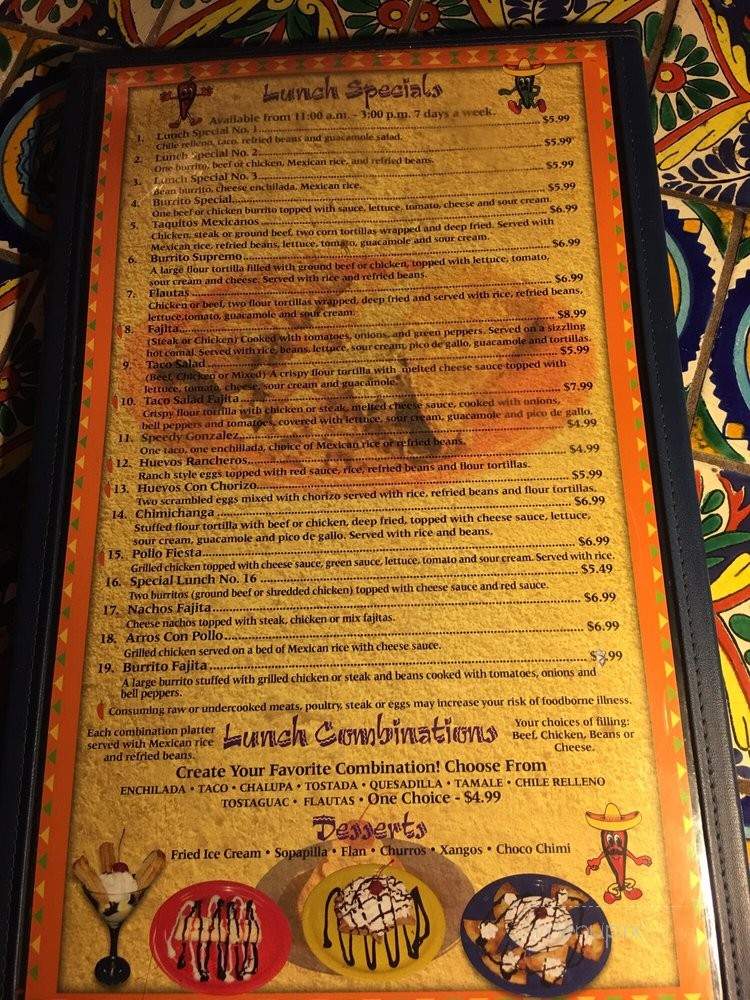 Lunch Specials
Available from 11:00 a.m. - 3:00 p.m. 7 days a week.
1. Lunch Special No. 1 $5.99
Chile relleno, taco, refried beans and guacamole salad.
2. Lunch Special No. 2 $5.99
One burrito, beef or chicken, Mexican rice, and refried beans.
3. Lunch Special No. 3 $5.99
Bean burrito, cheese enchilada, Mexican rice.
4. Burrito Special $5.99
One beef or chicken burrito topped with sauce, lettuce, tomato, cheese and sour cream.
5. Taquitos Mexicanos $6.99
Chicken, steak or ground beef, two corn tortillas wrapped and deep fried. Served with
Mexican rice, refried beans, lettuce, tomato, guacamole and sour cream.
6. Burrito Supremo $6.99
A large flour tortilla filled with ground beef or chicken, topped with lettuce, tomato,
sour cream and cheese. Served with rice and refried beans.
7. Flautas $6.99
Chicken or beef, two flour tortillas wrapped, deep fried and served with rice, refried beans,
lettuce,tomato, guacamole and sour cream.
8. Fajita $8.99
(Steak or Chicken) Cooked with tomatoes, onions, and green peppers. Served on a sizzling
hot comal. Served with rice, beans, lettuce, sour cream, pico de gallo, guacamole and tortillas.
9. Taco Salad $5.99
(Beef, Chicken or Mixed) A crispy flour tortilla with melted cheese sauce topped with
lettuce, tomato, cheese, sour cream and guacamole.
10. Taco Salad Fajita $7.99
Crispy flour tortilla with chicken or steak, melted cheese sauce, cooked with onions,
bell peppers and tomatoes, covered with lettuce, sour cream, guacamole and pico de gallo.
11. Speedy Gonzalez $4.99
One taco, one enchilada, choice of Mexican rice or refried beans.
12. Huevos Rancheros $4.99
Ranch style eggs topped with red sauce, rice, refried beans and flour tortillas.
13. Huevos Con Chorizo $5.99
Two scrambled eggs mixed with chorizo served with rice, refried beans and flour tortillas.
14. Chimichanga $6.99
Stuffed flour tortilla with beef or chicken, deep fried, topped with cheese sauce, lettuce,
sour cream, guacamole and pico de gallo. Served with rice and beans.
15. Pollo Fiesta $6.99
Grilled chicken topped with cheese sauce, green sauce, lettuce, tomato and sour cream. Served with rice.
16. Special Lunch No. 16 $5.49
Two burritos (ground beef or shredded chicken) topped with cheese sauce and red sauce.
17. Nachos Fajita $6.99
Cheese nachos topped with steak, chicken or mix fajitas.
18. Arros Con Pollo $6.99
Grilled chicken served on a bed of Mexican rice with cheese sauce.
19. Burrito Fajita
A large burrito stuffed with grilled chicken or steak and beans cooked with tomatoes, onions and
bell peppers.
Consuming raw or undercooked meats, poultry, steak or eggs may increase your risk of foodborne illness.
Each combination platter
served with Mexican rice
and refried beans.
Lunch Combinations
Your choices of filling:
Beef, Chicken, Beans or
Cheese.
Create Your Favorite Combination! Choose From
ENCHILADA • TACO • CHALUPA • TOSTADA • QUESADILLA • TAMALE • CHILE RELLENO
TOSTAGUAC • FLAUTAS • One Choice - $4.99
Desserts
Fried Ice Cream • Sopapilla • Flan • Churros • Xangos • Choco Chimi